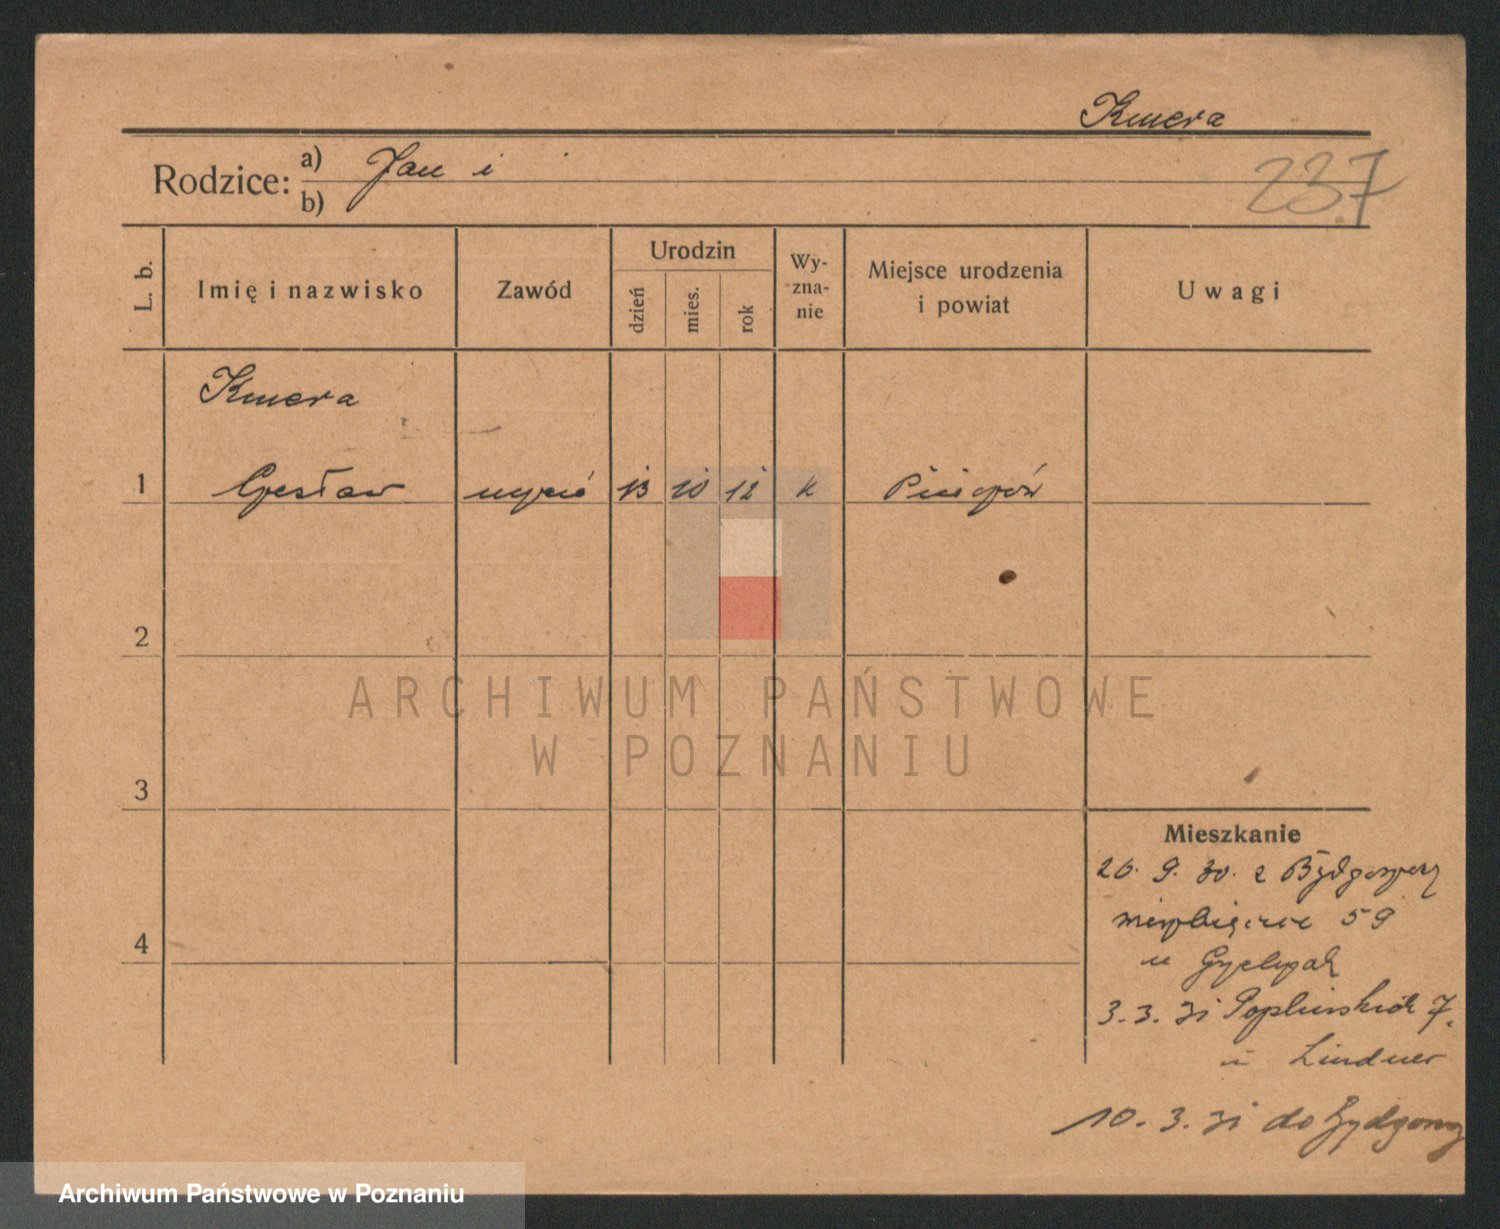 Kmera
Rodzice: a) Jan i
b)
237
L. b.
Imię i nazwisko
Zawód
Urodzin
dzień
mies.
rok
Wy-
zna-
nie
Miejsce urodzenia
i powiat
Uwagi
Kmera
1 Czesław uczeń 13 10 12 k
2
3
4
Mieszkanie
26. 9. 30. z Bydgoszczy
59
u
3. 3. 31 Poplińskich 7.
u Lindner
10. 3. 31 do Bydgoszcz
ARCHIWUM PAŃSTWOWE
W POZNANIU
Archiwum Państwowe w Poznaniu